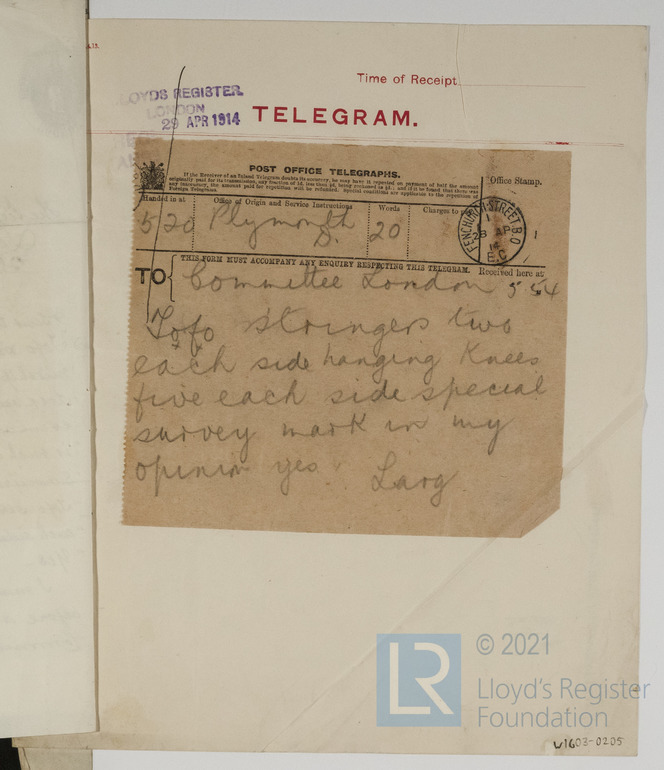 Time of Receipt
LLOYDS REGISTER.
LONDON
29 APR 1914
TELEGRAM.
POST OFFICE TELEGRAPHS.
If the Receiver of an Inland Telegram doubts its accuracy, he may have it repeated on payment of half the amount
originally paid for its transmission, any fraction of 1d. less than ½d. being reckoned as ½d.; and if it be found that there was
any inaccuracy, the amount paid for repetition will be refunded. Special conditions are applicable to the repetition of
Foreign Telegrams.
Office Stamp.
Handed in at
Office of Origin and Service Instructions
Words
Charges to
5 20 Plymouth 20
D.
FENCHURCH STREET B.O
28 AP
14
E.C
THIS FORM MUST ACCOMPANY ANY ENQUIRY RESPECTING THIS TELEGRAM.
Received here at
TO Committee London 5 54
Tofo Stringers two
each side hanging Knees
five each side special
survey mark in my
opinion yes. Larg
LR
© 2021
Lloyd's Register
Foundation
W1603-0205